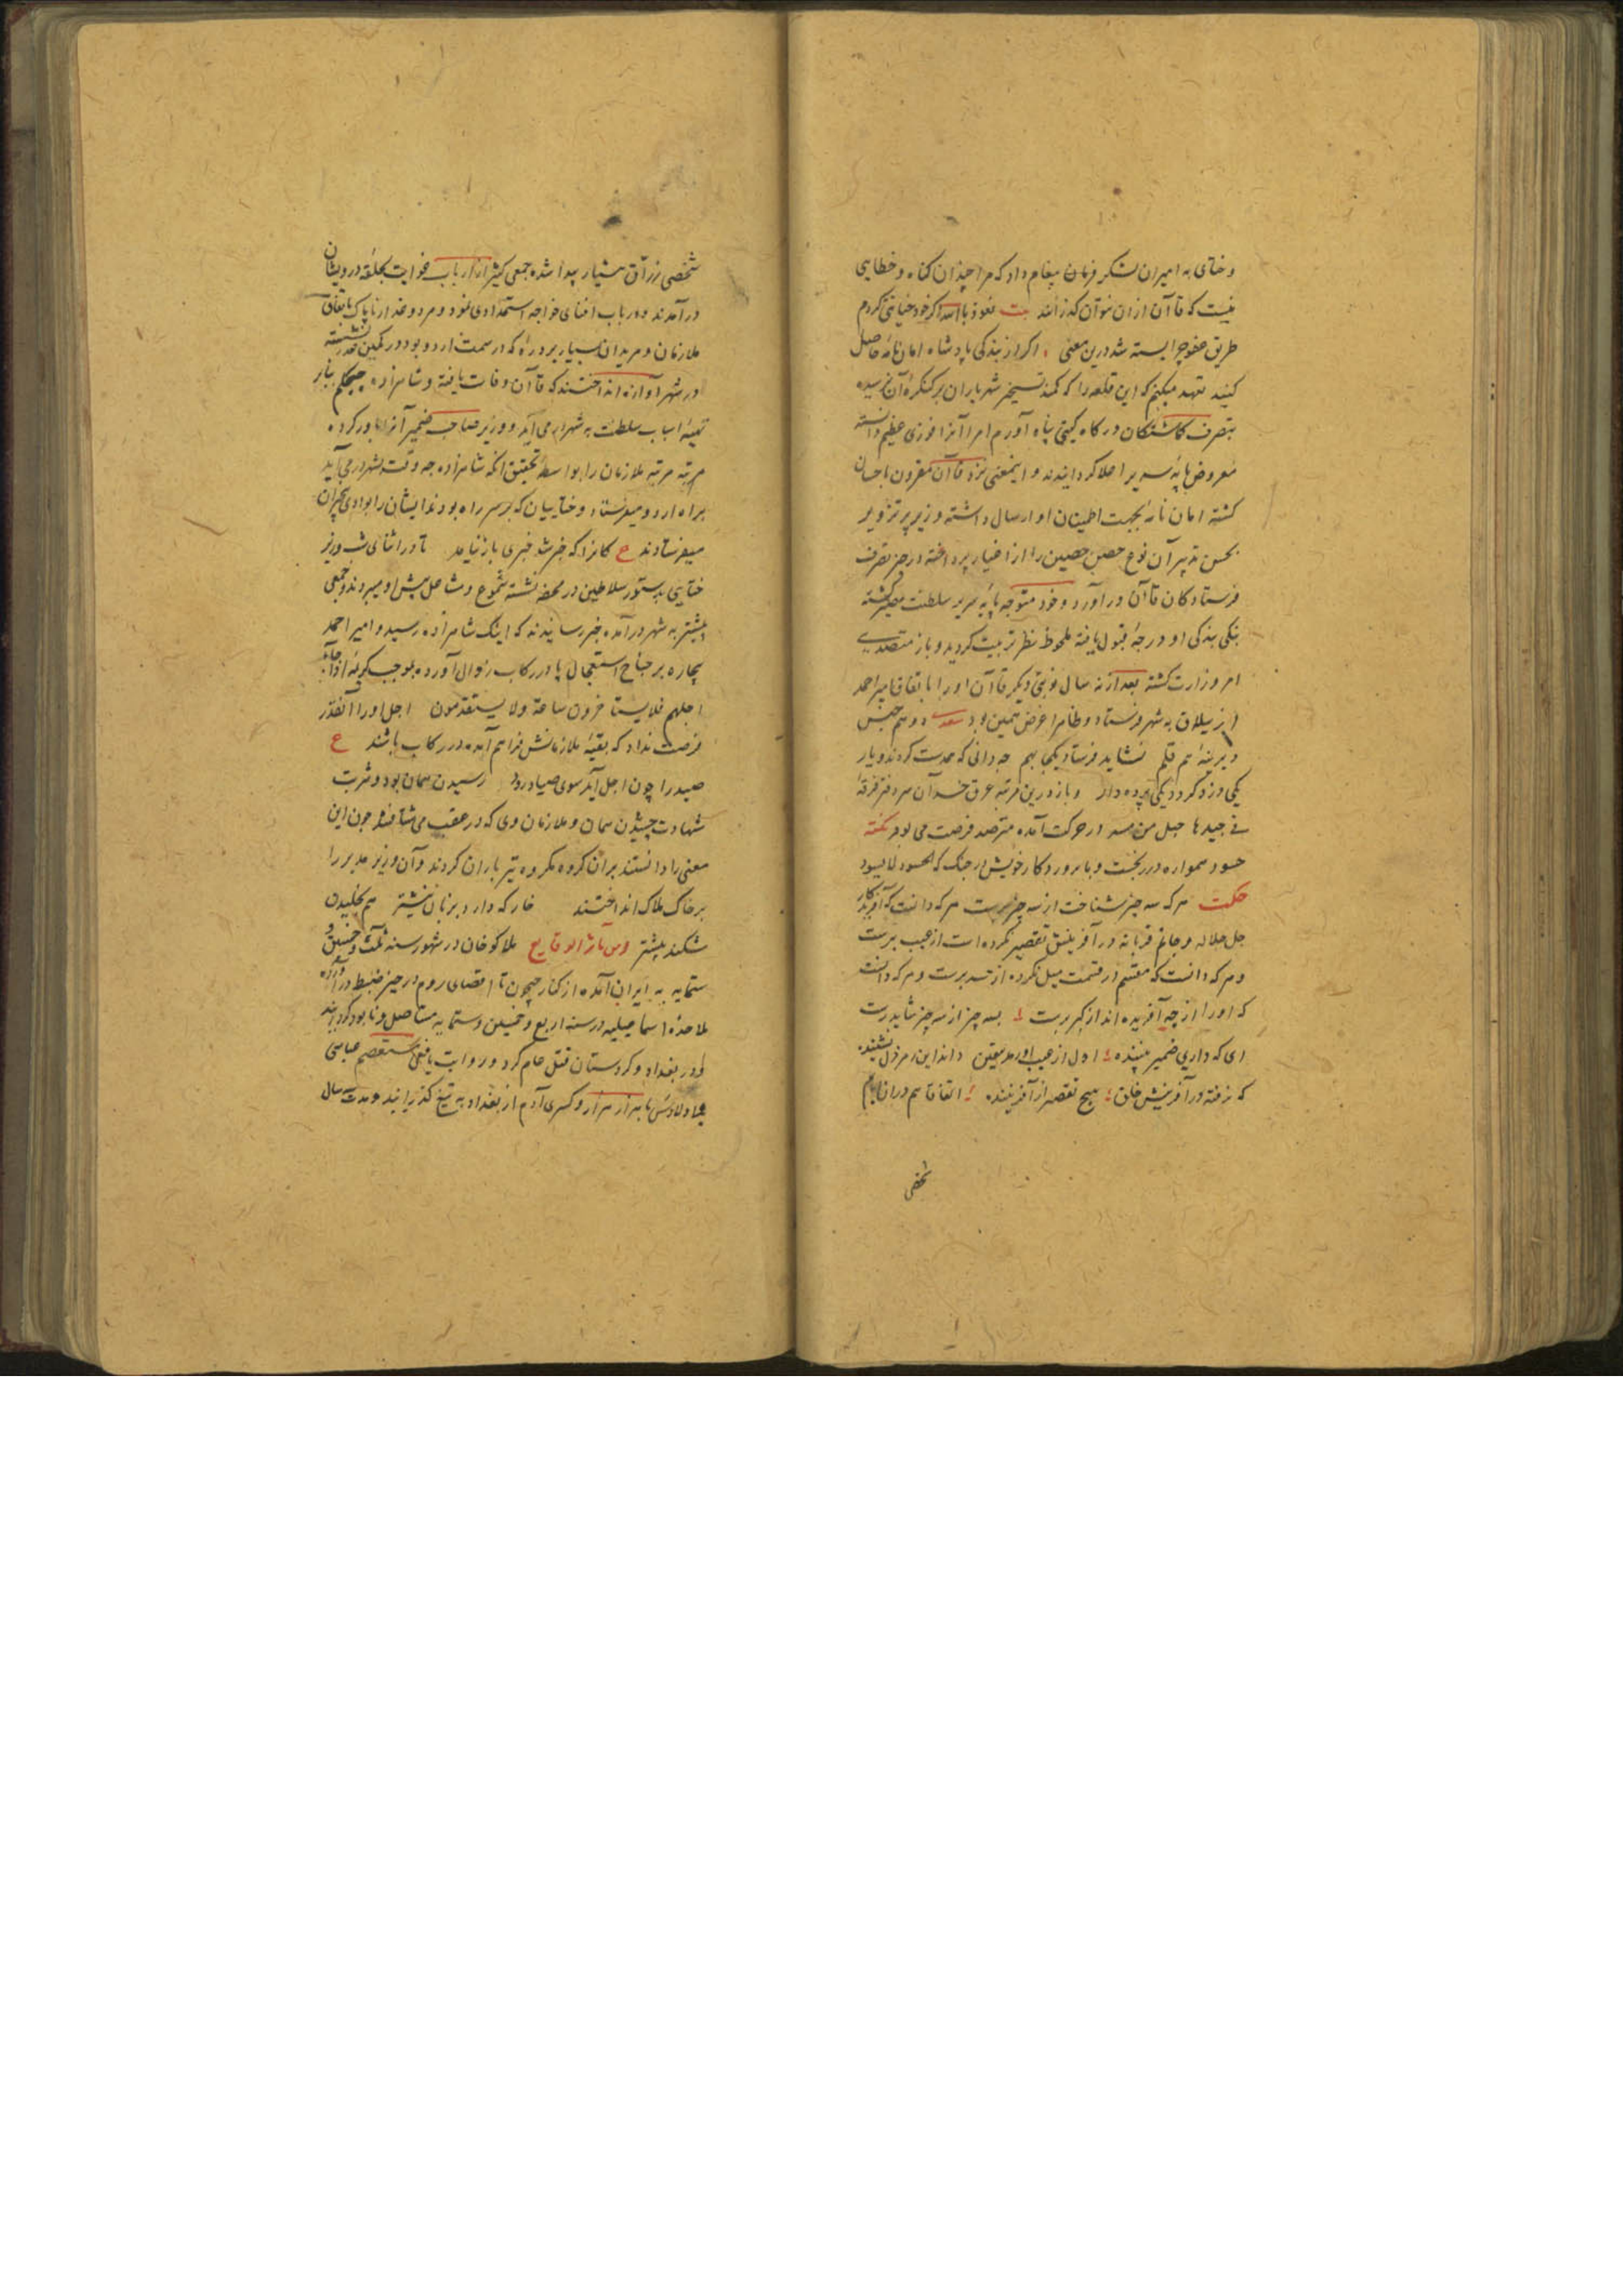 و ختای به امیران لشکر فرمان پیغام داد که مرا چندان کناه و خطایی
نیست که قاآن از ان نتوان کذرانند بیت نعوذ بالله اکر خود خیانتی کردم
طریق عفو چرا بسته شد درین معنی اکر از بندکی پادشاه امان نامه حاصل
کنید تعهد میکنم که این قلعه را که کمند تسخیر شهریاران بر کنکره آن نرسیده
بتصرف کماشتکان درکاه کیتی پناه آورم امرا آنرا فوزی عظیم دانسته
معروض پایه سریر اعلا کردانیدند و اینمعنی نزد قاآن مقرون باحسان
کشته امان نامه بجهت اطمینان او ارسال داشته وزیر پر تزویر
بحسن تدبیر آن نوع حصن حصین را از اغیار پرداخته در حیز تصرف
فرستادکان قاآن درآورد و خود متوجه پایه سریر سلطنت مصیر کشته
بندکی او درجه قبول یافته ملحوظ نظر تربیت کردید و باز متصدی
امر وزارت کشته بعد از نه سال نوبتی دیکر قاآن او را باتفاق امیر احمد
از ییلاق به شهر فرستاد و ظاهرا غرض همین بود سعدی دو هم جنس
دیرینه هم قلم نشاید فرستاد یکجا بهم چه دانی که همدست کردند و یار
یکی دزد کردد یکی پرده دار و باز درین مرتبه عرق حسد آن سر دفتر فرقه
فی جیدها حبل من مسد در حرکت آمده مترصد فرصت می بود نکته
حسود همواره در رنجست و با پروردکار خویش در جنک که الحسود لا یسود
حکمت هر که سه چیز شناخت از سه چیز برست هر که دانست که آفریدکار
جل جلاله و در آفرینش تقصیر نکرده است از عیب برست
و هر که دانست که مقسم در قسمت میل نکرده از حسد برست و هر که دانست
که او را از چه آفریده اند از کبر برست بسه چیز از سه چیز شاید رست
ای که داری ضمیر بیننده اول از عیب داند این رمز دل
که نرفته در آفرینش خلق هیچ تقصیر از آفریننده اتفاقا هم دران ایام
شخصی
شخصی زراق بسیار پیدا شده جمعی کثیر از ارباب غوایت بحلقه درویشان
درآمدند و در باب افنای خواجه استمدادی نمود و مردود غدار ناپاک باتفاق
ملازمان و مریدان بسیار بر در راه که در سمت اردو بود در کمین غدر نشسته
در شهر آوازه انداختند که قاآن وفات یافته و شاهزاده جیمکیم بنابر
تهیه اسباب سلطنت به شهر می آید و وزیر صاحب ضمیر آنرا باور کرده
مرتبه مرتبه ملازمان را بواسطه تحقیق انکه شاهزاده چه وقت بشهر درمی آید
براه اردو میفرستاد و ختاییان که بر سر راه بودند ایشان را بوادی
میفرستادند ع کانرا که خبر شد خبری باز نیامد تا در اثنای شب وزیر
ختایی بدستور سلاطین در محفه نشسته شموع و مشاعل پیش او میبردند و جمعی
پیشتر به شهر درآمده خبر رسانیدند که اینک شاهزاده رسید و امیر احمد
بیچاره بر جناح استعجال پا در رکاب زوال آورده بموجب کریمه اذا جاء
اجلهم فلا یستاخرون ساعة و لا یستقدمون اجل او را آنقدر
فرصت نداد که بقیه ملازمانش فراهم آمده در رکاب باشند ع
صید را چون اجل آید سوی صیاد رود رسیدن همان بود و شربت
شهادت چشیدن همان و ملازمان وی که در عقب می شتافتند چون این
معنی را دانستند بران کروه مکروه تیر باران کردند و آن وزیر مدبر را
بر خاک هلاک انداختند خار که دارد بزبان نیشتر هم بخلیدن
شکند پیشتر و من مآثر الوقایع هلاکو خان در شهور سنه ثلث و خمسین و
ستمایه به ایران آمده از کنار جیحون تا اقصای روم در حیز ضبط درآورده
ملاحده اسماعیلیه در سنه اربع و خمسین و ستمایه مستاصل و نابود کردانید
و در بغداد و کردستان قتل عام کرد و روایت یافعی مستعصم عباسی
با اولادش با هزار هزار و کسری آدم از بغداد به تیغ کذرانید و مدت سال